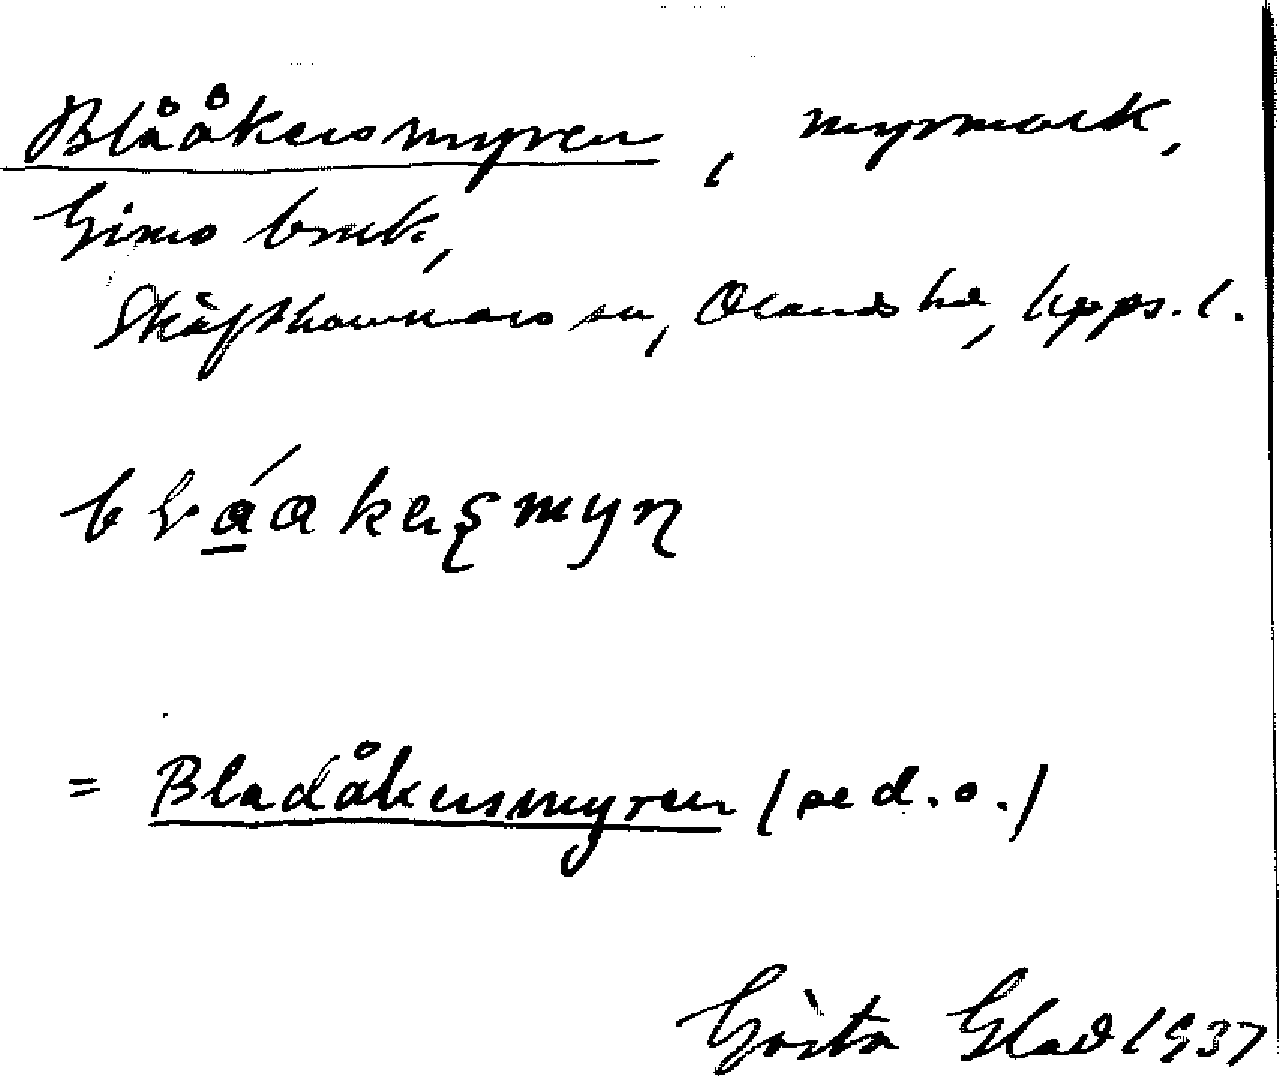 Blååkersmyren, myrmark,
Gimo bruk,
Skäfthammars sn, Olands hd, Upps. l.
= Bladåkersmyren (se d. o.)
Gösta Glad 1937